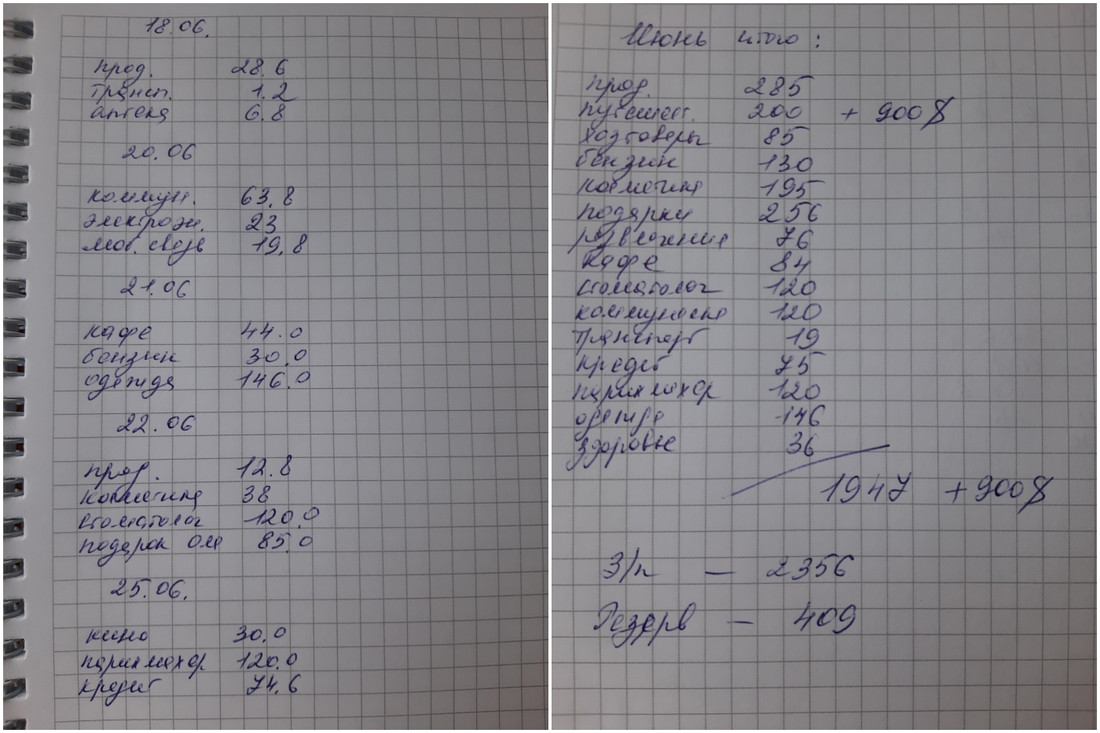 18.06.
прод. 28.6
трансп. 1.2
аптека 6.8
20.06
коммун. 63,8
электроэн. 23
моб. связь 19,8
21.06
кафе 44.0
бензин 30.0
одежда 146.0
22.06
прод. 12.8
косметика 38
стоматолог 120.0
подарок Оле 85.0
25.06.
кино 30.0
парикмахер 120.0
кредит 74.6
Июнь итого:
прод. 285
путешест. 200 + 900$
хозтовары 85
бензин 130
косметика 195
подарки 256
развлечения 76
кафе 84
стоматолог 120
коммуналка 120
транспорт 19
кредит 75
парикмахер 120
одежда 146
здоровье 36
1947 +900$
З/п — 2356
Резерв — 409